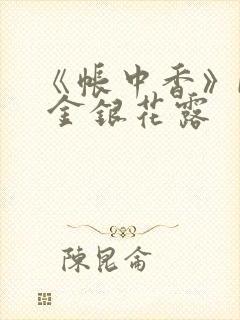 《帳中香》
金銀花露
陳昆侖